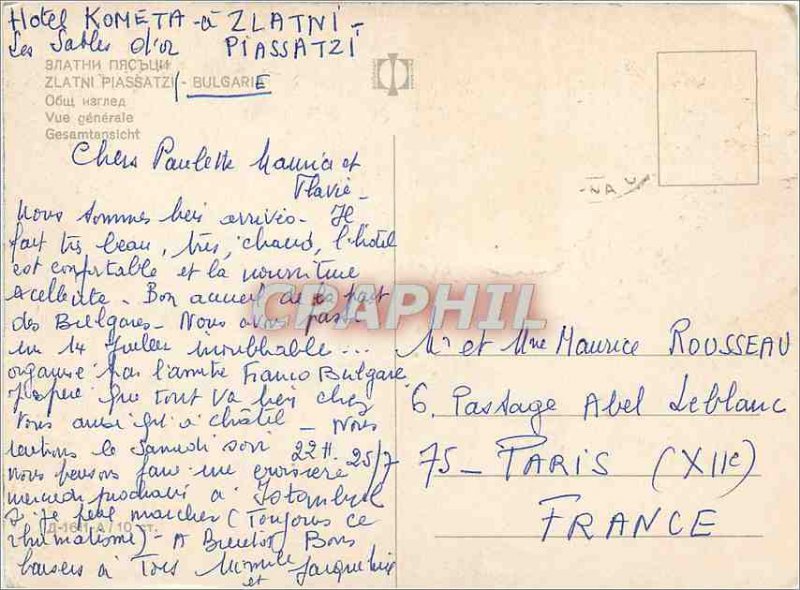 Hotel KOMETA - à ZLATNI -
Les Sables d'or PIASSATZI
ЗЛАТНИ ПЯСЪЦИ
ZLATNI PIASSATZI - BULGARIE
Общ изглед
Vue générale
Gesamtansicht
Chers Paulette Maurice et
Flavie -
Nous sommes bien arrivés - Il
fait très beau, très, chaud, l'hôtel
est confortable et la nourriture
excellente - Bon accueil de la part
des Bulgares - Nous avons passé
un 14 Juillet inoubliable ...
organisé par l'amitié Franco Bulgare
J'espère que tout va bien chez
vous aussi à châtel - Nous
rentrons le Samedi soir 22H. 25/7
nous pensons faire une croisière
mercredi prochain à Istambul
si je peux marcher (Toujours ce
rhumatisme) - A Bientôt Bons
baisers à Tous et Jacqueline
Д-1611-А/10 ст.
NAV
CRAPHIL
Mr et Mme Maurice ROUSSEAU
6, Passage Abel Leblanc
75 - PARIS (XIIe)
FRANCE